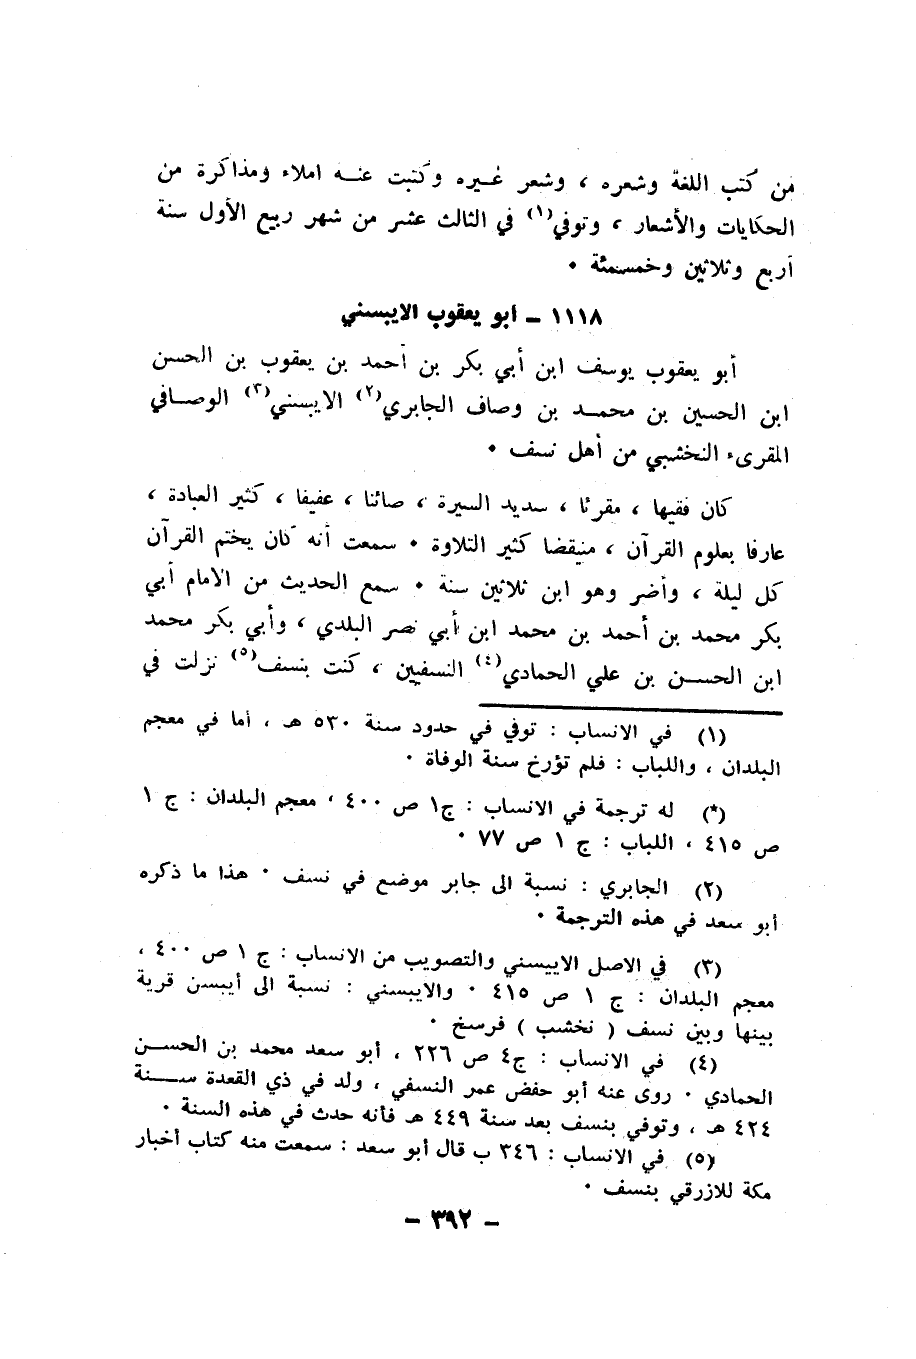 من كتب اللغة وشعره ، وشعر غيره وكتبت عنه املاء ومذاكرة من
الحكايات والأشعار ، وتوفي(١) في الثالث عشر من شهر ربيع الأول سنة
أربع وثلاثين وخمسمئة ٠
١١١٨ ـ ابو يعقوب الايبسني
أبو يعقوب يوسف ابن أبي بكر بن أحمد بن يعقوب بن الحسن
ابن الحسين بن محمد بن وصاف الجابري(٢) الايبسني(٣) الوصافي
المقرىء النخشبي من أهل نسف ٠
كان فقيها ، مقرئا ، سديد السيرة ، صائنا ، عفيفا ، كثير العبادة ،
عارفا بعلوم القرآن ، منيقضا كثير التلاوة ٠ سمعت أنه كان يختم القرآن
كل ليلة ، وأضر وهو ابن ثلاثين سنة ٠ سمع الحديث من الامام أبي
بكر محمد بن أحمد بن محمد ابن أبي نصر البلدي ، وأبي بكر محمد
ابن الحسن بن علي الحمادي(٤) النسفيين ، كنت بنسف(٥) نزلت في
(١) في الانساب : توفي في حدود سنة ٥٣٠ هـ ، أما في معجم
البلدان ، واللباب : فلم تؤرخ سنة الوفاة ٠
(*) له ترجمة في الانساب : ج١ ص ٤٠٠ ، معجم البلدان : ج ١
ص ٤١٥ ، اللباب : ج ١ ص ٧٧ ٠
(٢) الجابري : نسبة الى جابر موضع في نسف ٠ هذا ما ذكره
أبو سعد في هذه الترجمة ٠
(٣) في الاصل الاييسني والتصويب من الانساب : ج ١ ص ٤٠٠ ،
معجم البلدان : ج ١ ص ٤١٥ ٠ والايبسني : نسبة الى أيبسن قرية
بينها وبين نسف ( نخشب ) فرسخ ٠
(٤) في الانساب : ج٤ ص ٢٢٦ ، أبو سعد محمد بن الحسن
الحمادي ٠ روى عنه أبو حفض عمر النسفي ، ولد في ذي القعدة سنة
٤٢٤ هـ ، وتوفي بنسف بعد سنة ٤٤٩ هـ فأنه حدث في هذه السنة ٠
(٥) في الانساب : ٣٤٦ ب قال أبو سعد : سمعت منه كتاب أخبار
مكة للازرقي بنسف ٠
ـ ٣٩٢ ـ